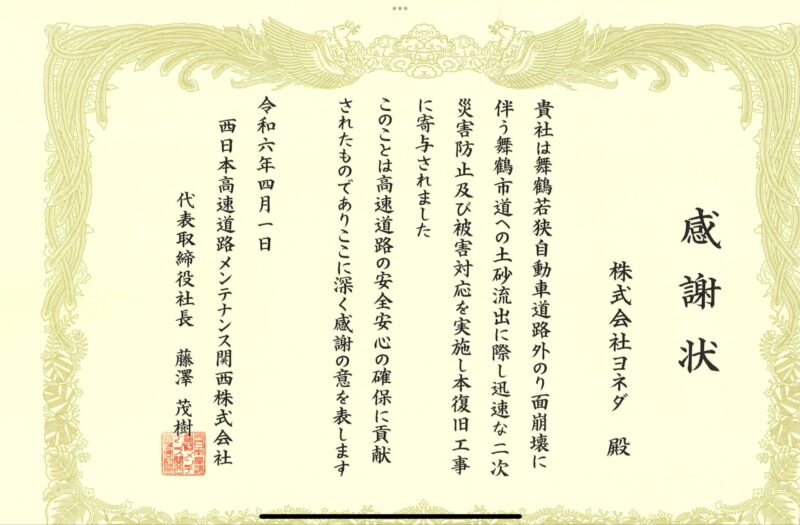 感謝状
株式会社ヨネダ 殿
貴社は舞鶴若狭自動車道路外のり面崩壊に
伴う舞鶴市道への土砂流出に際し迅速な二次
災害防止及び被害対応を実施し本復旧工事
に寄与されました
このことは高速道路の安全安心の確保に貢献
されたものでありここに深く感謝の意を表します
令和六年四月一日
西日本高速道路メンテナンス関西株式会社
代表取締役社長 藤澤 茂樹